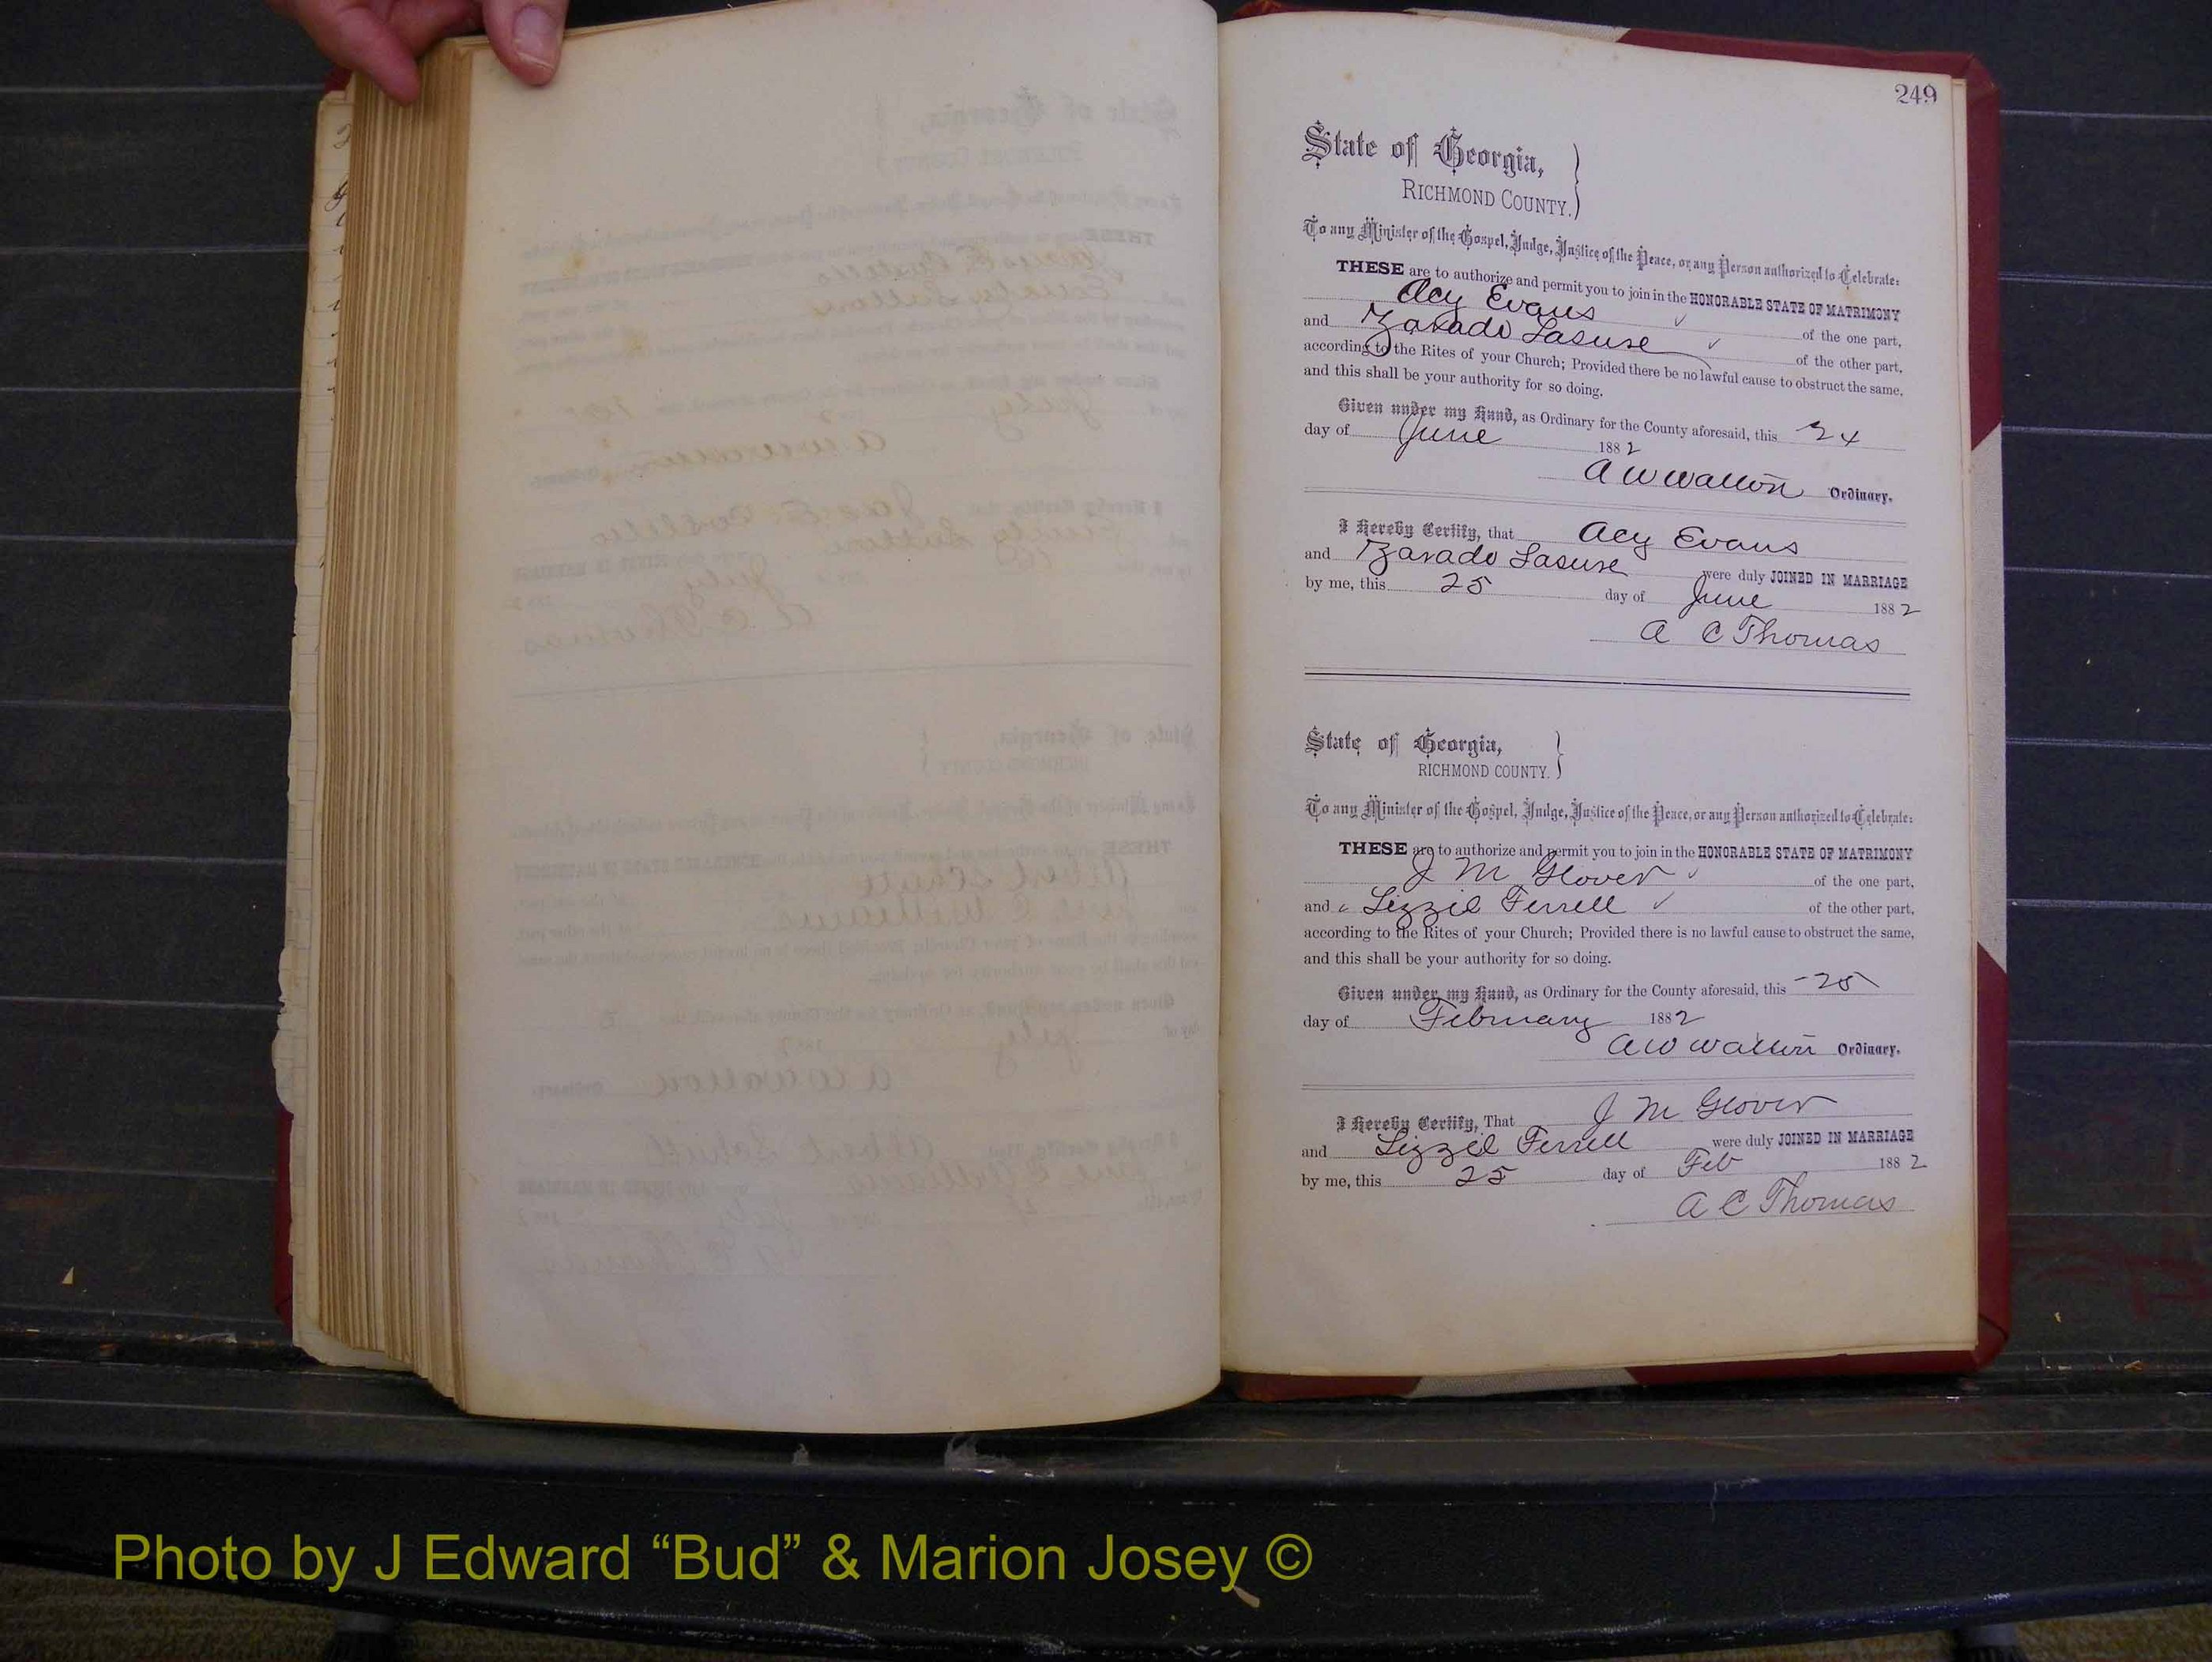 249
State of Georgia,
RICHMOND COUNTY.
To any Minister of the Gospel, Judge, Justice of the Peace, or any Person authorized to Celebrate:
THESE are to authorize and permit you to join in the HONORABLE STATE OF MATRIMONY
Acy Evans of the one part,
and Zavado Lasure of the other part,
according to the Rites of your Church; Provided there be no lawful cause to obstruct the same,
and this shall be your authority for so doing.
Given under my Hand, as Ordinary for the County aforesaid, this 24
day of June 1882
A W Walton Ordinary.
I Hereby Certify, that Acy Evans
and Zavado Lasure were duly JOINED IN MARRIAGE
by me, this 25 day of June 1882
A C Thomas
State of Georgia,
RICHMOND COUNTY.
To any Minister of the Gospel, Judge, Justice of the Peace, or any Person authorized to Celebrate:
THESE are to authorize and permit you to join in the HONORABLE STATE OF MATRIMONY
J M Glover of the one part,
and Lizzie Ferrell of the other part,
according to the Rites of your Church; Provided there is no lawful cause to obstruct the same,
and this shall be your authority for so doing.
Given under my Hand, as Ordinary for the County aforesaid, this 25
day of February 1882
A W Walton Ordinary.
I Hereby Certify, That J M Glover
and Lizzie Ferrell were duly JOINED IN MARRIAGE
by me, this 25 day of Feb 1882
A C Thomas
Photo by J Edward “Bud” & Marion Josey ©